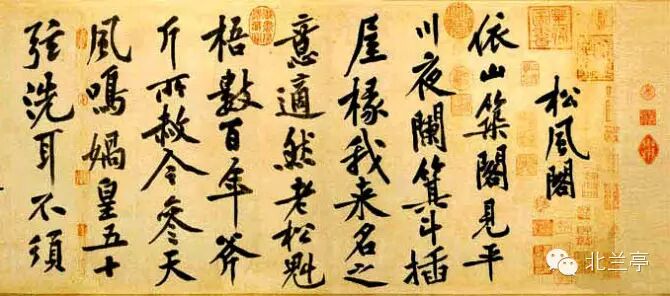 松風閣
依山築閣見平
川夜闌箕斗插
屋椽我来名之
意適然老松魁
梧數百年斧
斤所赦今參天
風鳴媧皇五十
弦洗耳不須
北兰亭